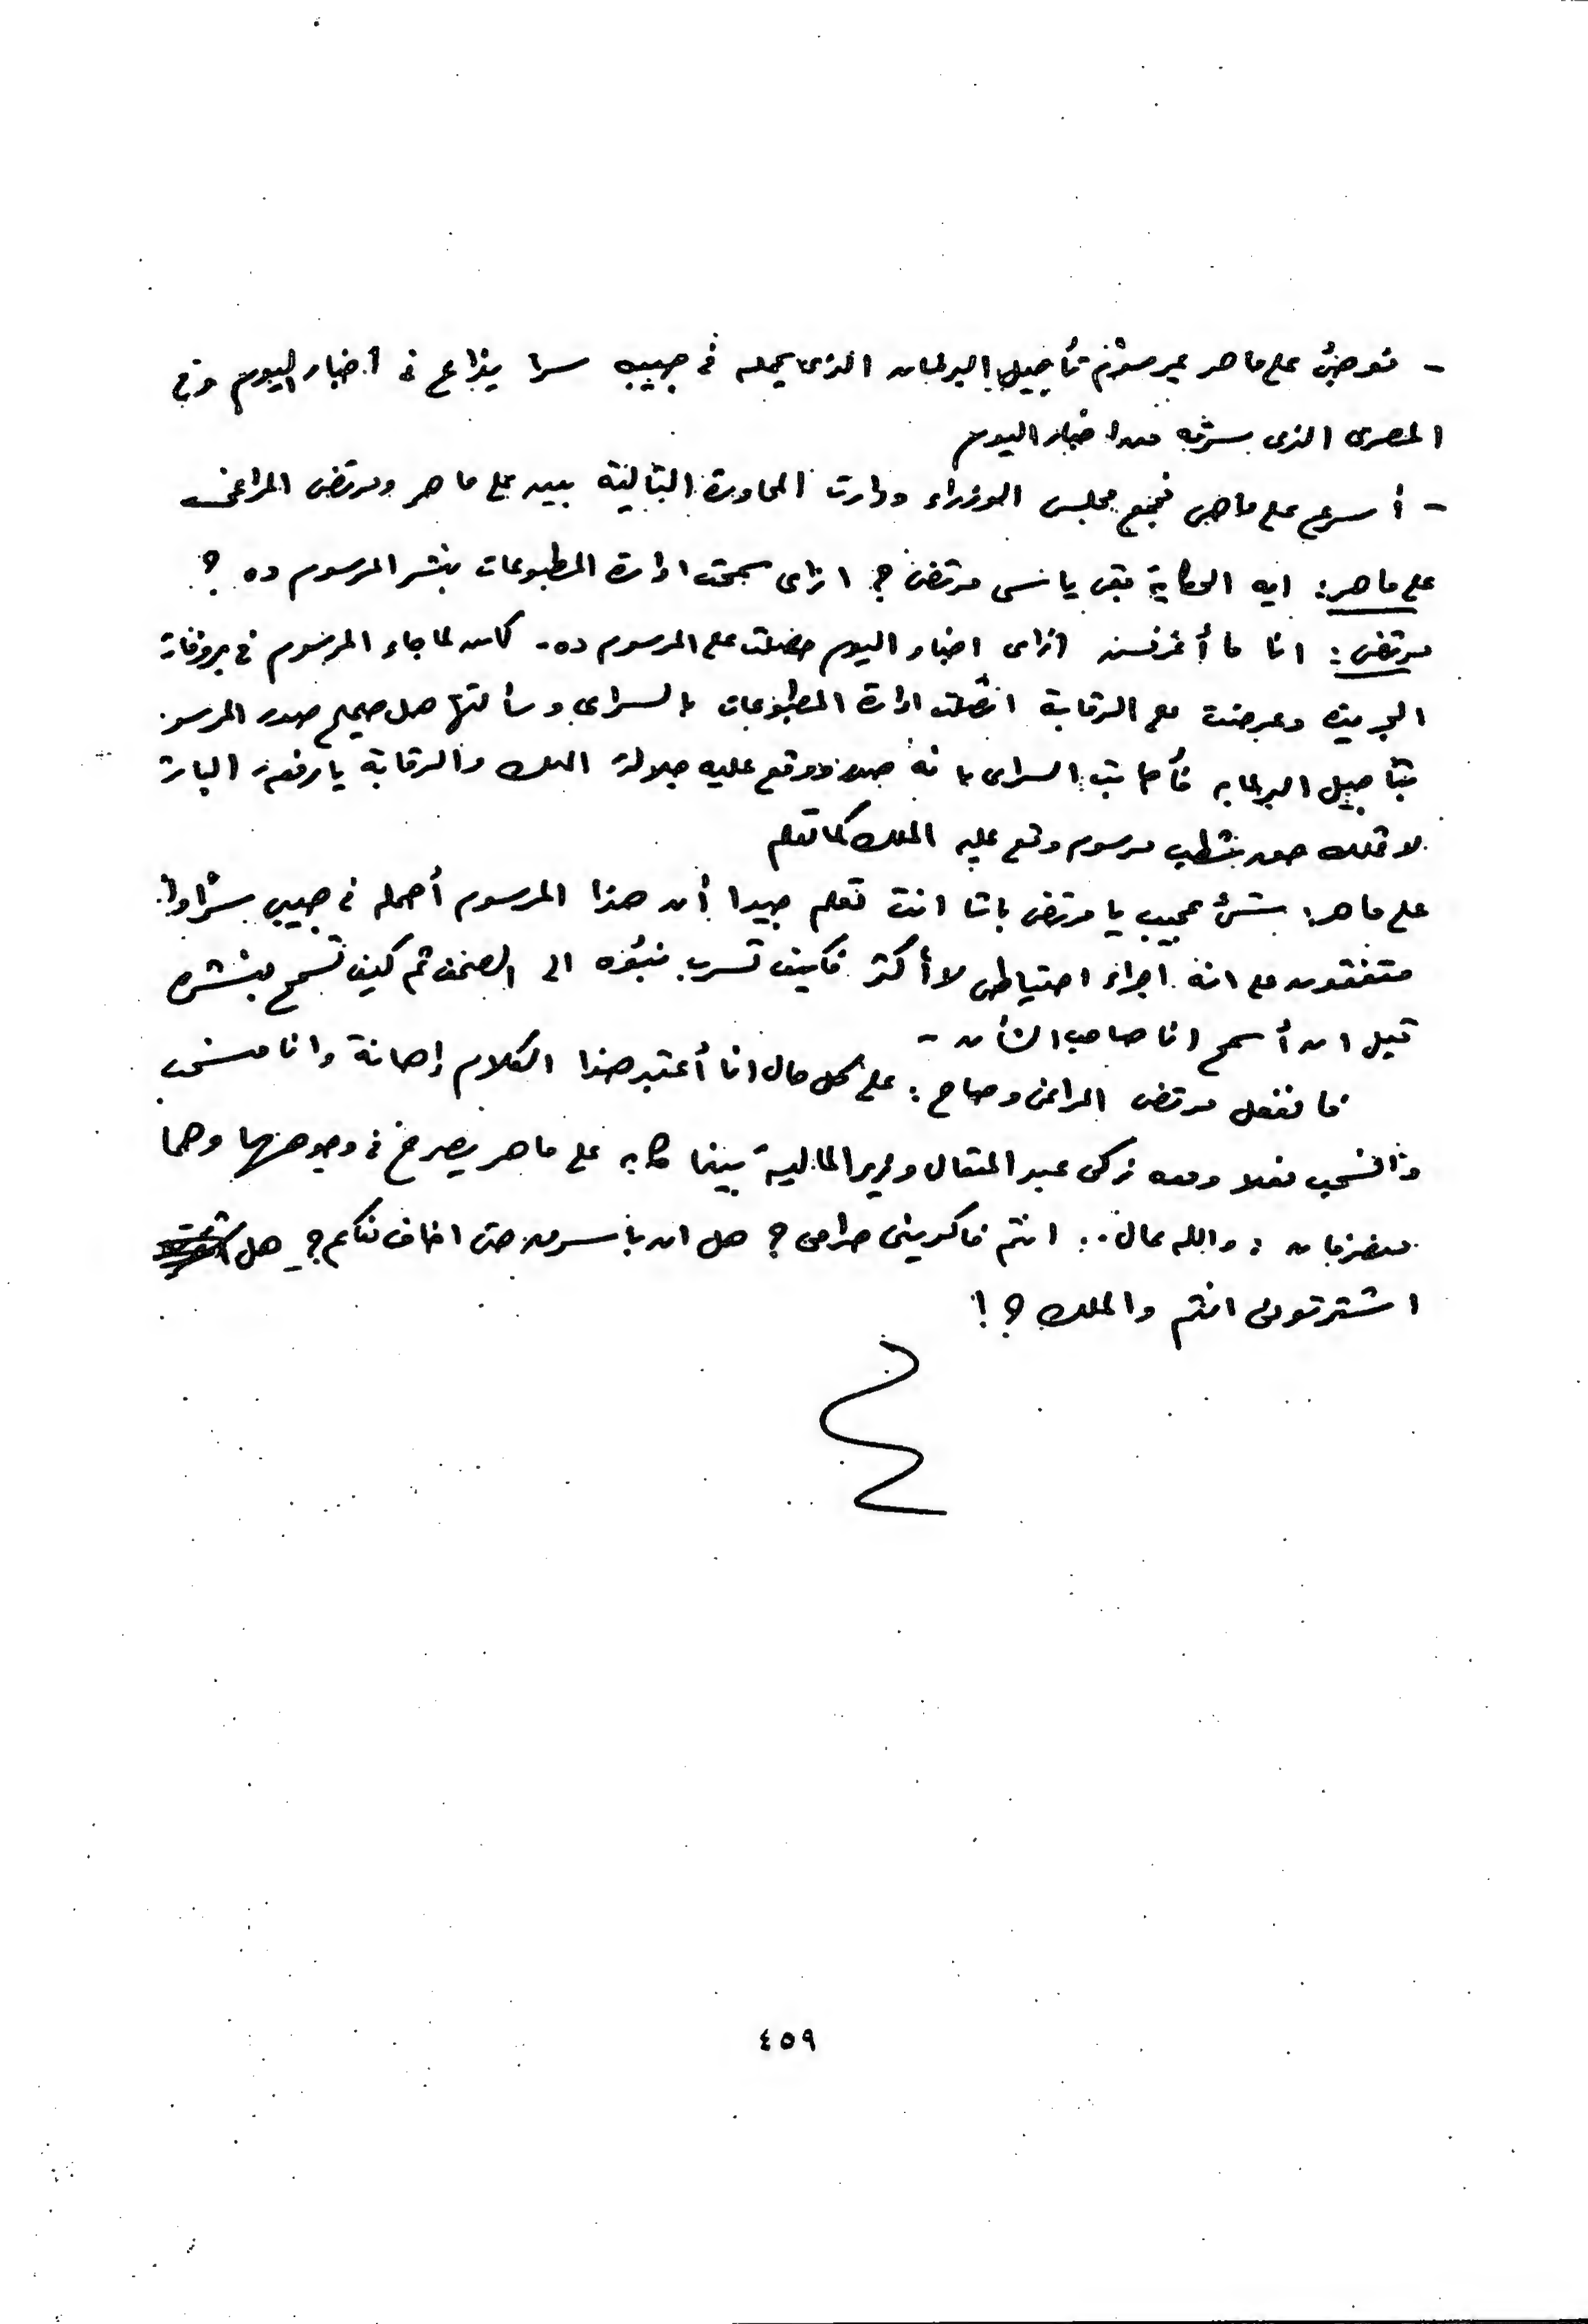 - فوجئ على ماهر بمرسوم تأجيل البرلمان الذى يحمله فى جيبه سرا يذاع فى أخبار اليوم وفى
المصرى الذى سرقه من اخبار اليوم
- أسرع على ماهر فجمع مجلس الوزراء ودارت المحاورة التالية بين على ماهر ومرتضى المراغى
على ماهر: ايه الحكاية بقى ياسى مرتضى؟ ازاى سمحت ادارة المطبوعات بنشر المرسوم ده؟
مرتضى: انا ما أعرفش ازاى اخبار اليوم حصلت على المرسوم ده - لكن لما جاء المرسوم فى بروفات
الجريدة وعرضت على الرقابة اتصلت ادارة المطبوعات بالسراى وسألتها هل صحيح صدور المرسوم
بتأجيل البرلمان فأجابت السراى بانه صدر ووقع عليه جلالة الملك والرقابة يارفعة الباشا
لا تملك حق شطب مرسوم وقع عليه الملك كما تعلم
على ماهر: شئ عجيب يا مرتضى باشا انت تعلم جيدا أن هذا المرسوم أحمله فى جيبى سرا وأننا
متفقون على انه اجراء احتياطى لا أكثر فكيف تسرب نبؤه الى الصحف ثم كيف تسمح بنشره
قبل ان أسمح انا صاحب الشأن -
فانفعل مرتضى المراغى وصاح: على كل حال انا أعتبر هذا الكلام إهانة وانا منسحب
وانسحب فعلا ومعه زكى عبد المتعال وزير المالية بينما كان على ماهر يصرخ فى وجوههما وهما
منصرفان: والله عال.. انتم فاكرينى حرامى؟ هل انا سرقت حتى اخاف منكم؟ هل
اشتريتونى انتم والملك؟!
٤٥٩